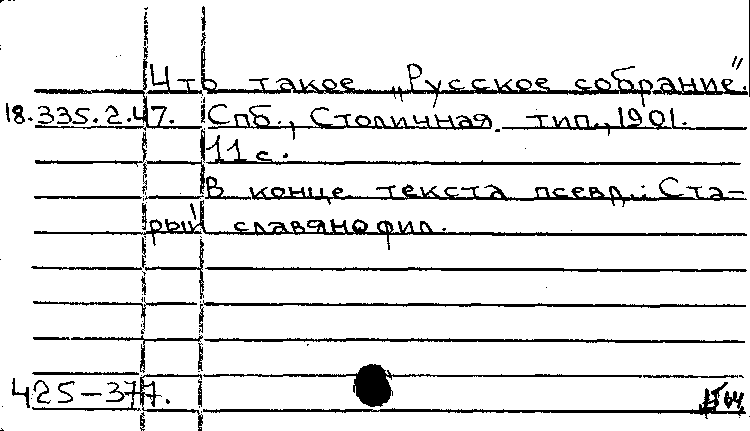 Что такое „Русское собрание".
18.335.2.47. Спб., Столичная тип., 1901.
11 с.
В конце текста псевд.: Ста-
рый славянофил.
425-377.